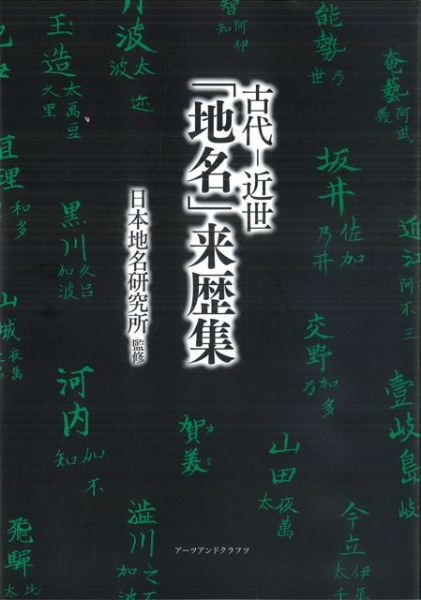 古代－近世
「地名」来歴集
日本地名研究所 監修
アーツアンドクラフツ
奄藝 阿武義
近江 阿不三
壹岐島
能勢 乃世
坂井 佐加乃井
交野 加多乃
山田 夜萬太
今立 伊萬太千
智 阿伊知
賀美 カミ
丹波 太迩波
玉造 太萬豆久里
黒川 久呂加波
河内 加不知
澁川 之不加波
亘理 和多
山城 夜萬之
飛騨 比太